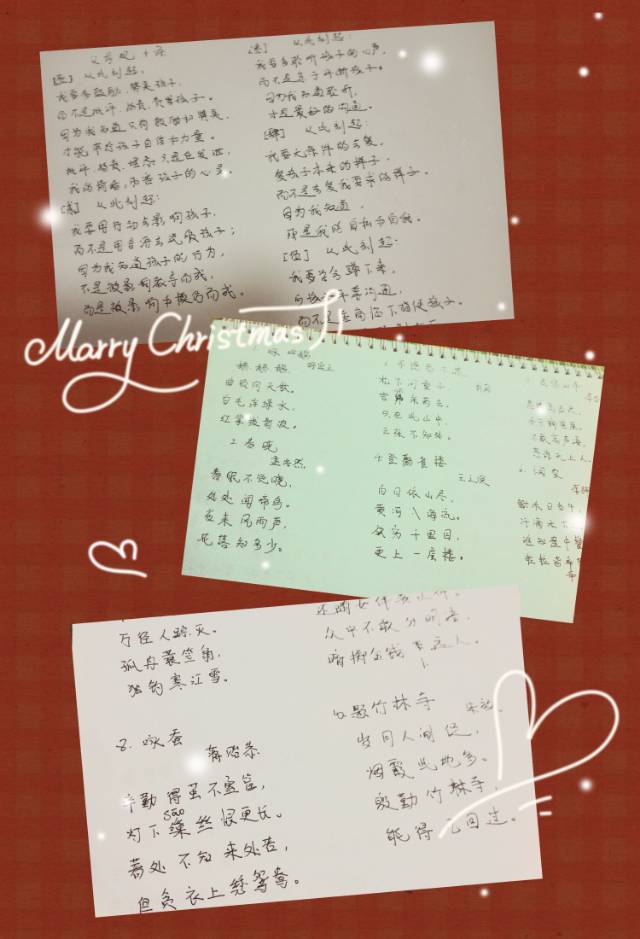 从此刻起，
我要多鼓励、赞美孩子，
而不是批评、指责、
因为我知道，只有鼓励和赞美，
才能带给孩子自信和力量。
批评、指责、
孩子的心灵
从此刻起：
我要用行动去影响孩子，
而不是用言语去说教孩子；
因为我知道孩子的行为，
不是被教导而成，
而是被影响和模仿而成。
从此刻起：
我要多聆听孩子的心声，
而不是急于评断孩子。
因为我知道聆听，
才是最好的沟通。
从此刻起：
我要无条件的去爱，
爱孩子本来的样子，
而不是去爱我要求的样子。
因为我知道，
那是我的自私和自我。
从此刻起：
我要学会蹲下来，
与孩子平等沟通，
而不是居高临下指使孩子。
Marry Christmas
鹅鹅鹅
曲项向天歌。
白毛浮绿水，
红掌拨清波。
2. 春晓
孟浩然
春眠不觉晓，
处处闻啼鸟。
夜来风雨声，
花落知多少。
松下问童子，
言师采药去，
只在此山中，
云深不知处。
4 登鹳雀楼
王之涣
白日依山尽，
黄河入海流。
欲穷千里目，
更上一层楼。
不敢高声语，
恐惊天上人。
万径人踪灭。
孤舟蓑笠翁，
独钓寒江雪。
8. 咏蚕
蒋贻恭
辛勤得茧不盈筐，
sāo
灯下缫丝恨更长。
著处不知来处苦，
但贪衣上绣鸳鸯。
众中不敢分明语，
暗掷金钱卜远人。
题竹林寺
朱放
岁月人间促，
烟霞此地多。
殷勤竹林寺，
能得几回过。